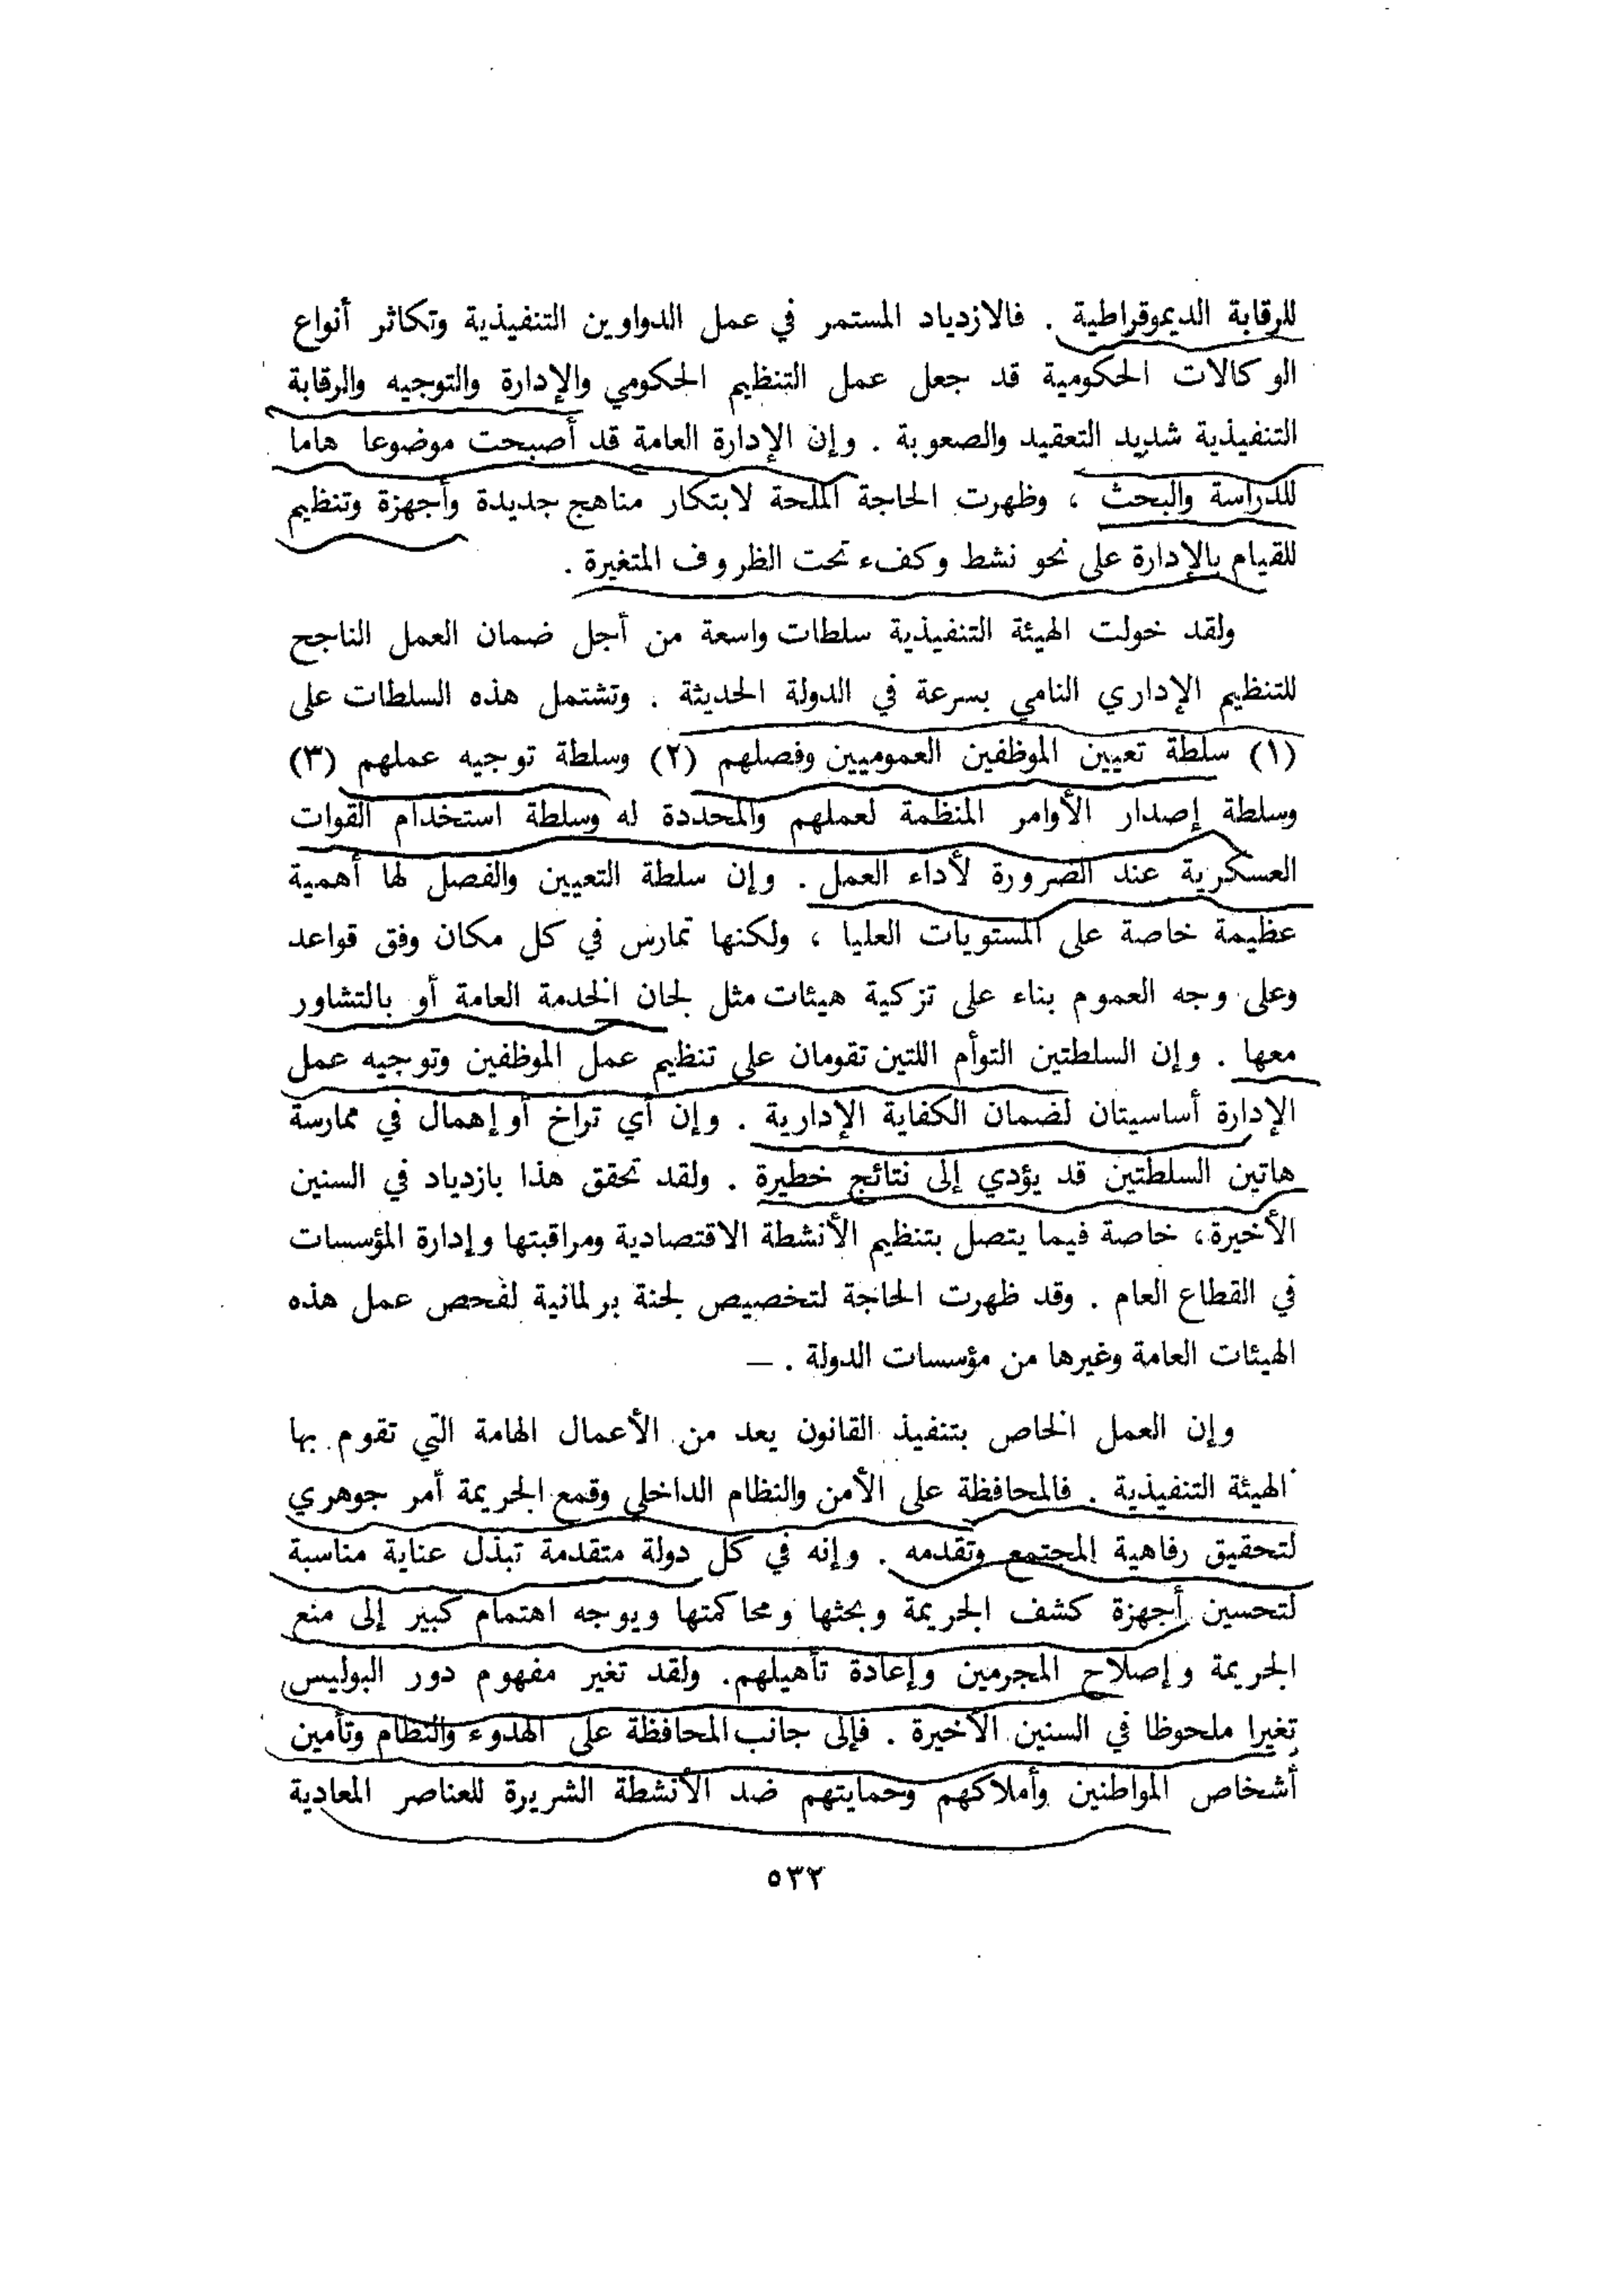 للرقابة الديموقراطية . فالازدياد المستمر في عمل الدواوين التنفيذية وتكاثر أنواع
الوكالات الحكومية قد جعل عمل التنظيم الحكومي والإدارة والتوجيه والرقابة
التنفيذية شديد التعقيد والصعوبة . وإن الإدارة العامة قد أصبحت موضوعا هاما
للدراسة والبحث ، وظهرت الحاجة الملحة لابتكار مناهج جديدة وأجهزة وتنظيم
للقيام بالإدارة على نحو نشط وكفء تحت الظروف المتغيرة .
ولقد خولت الهيئة التنفيذية سلطات واسعة من أجل ضمان العمل الناجح
للتنظيم الإداري النامي بسرعة في الدولة الحديثة . وتشتمل هذه السلطات على
(١) سلطة تعيين الموظفين العموميين وفصلهم (٢) وسلطة توجيه عملهم (٣)
وسلطة إصدار الأوامر المنظمة لعملهم والمحددة له وسلطة استخدام القوات
العسكرية عند الضرورة لأداء العمل . وإن سلطة التعيين والفصل لها أهمية
عظيمة خاصة على المستويات العليا ، ولكنها تمارس في كل مكان وفق قواعد
وعلى وجه العموم بناء على تزكية هيئات مثل لجان الخدمة العامة أو بالتشاور
معها . وإن السلطتين التوأم اللتين تقومان على تنظيم عمل الموظفين وتوجيه عمل
الإدارة أساسيتان لضمان الكفاية الإدارية . وإن أي تراخ أو إهمال في ممارسة
هاتين السلطتين قد يؤدي إلى نتائج خطيرة . ولقد تحقق هذا بازدياد في السنين
الأخيرة، خاصة فيما يتصل بتنظيم الأنشطة الاقتصادية ومراقبتها وإدارة المؤسسات
في القطاع العام . وقد ظهرت الحاجة لتخصيص لجنة برلمانية لفحص عمل هذه
الهيئات العامة وغيرها من مؤسسات الدولة . —
وإن العمل الخاص بتنفيذ القانون يعد من الأعمال الهامة التي تقوم بها
الهيئة التنفيذية . فالمحافظة على الأمن والنظام الداخلي وقمع الجريمة أمر جوهري
لتحقيق رفاهية المجتمع وتقدمه . وإنه في كل دولة متقدمة تبذل عناية مناسبة
لتحسين أجهزة كشف الجريمة وبحثها ومحاكمتها ويوجه اهتمام كبير إلى منع
الجريمة وإصلاح المجرمين وإعادة تأهيلهم. ولقد تغير مفهوم دور البوليس
تغيرا ملحوظا في السنين الأخيرة . فإلى جانب المحافظة على الهدوء والنظام وتأمين
أشخاص المواطنين وأملاكهم وحمايتهم ضد الأنشطة الشريرة للعناصر المعادية
٥٣٢